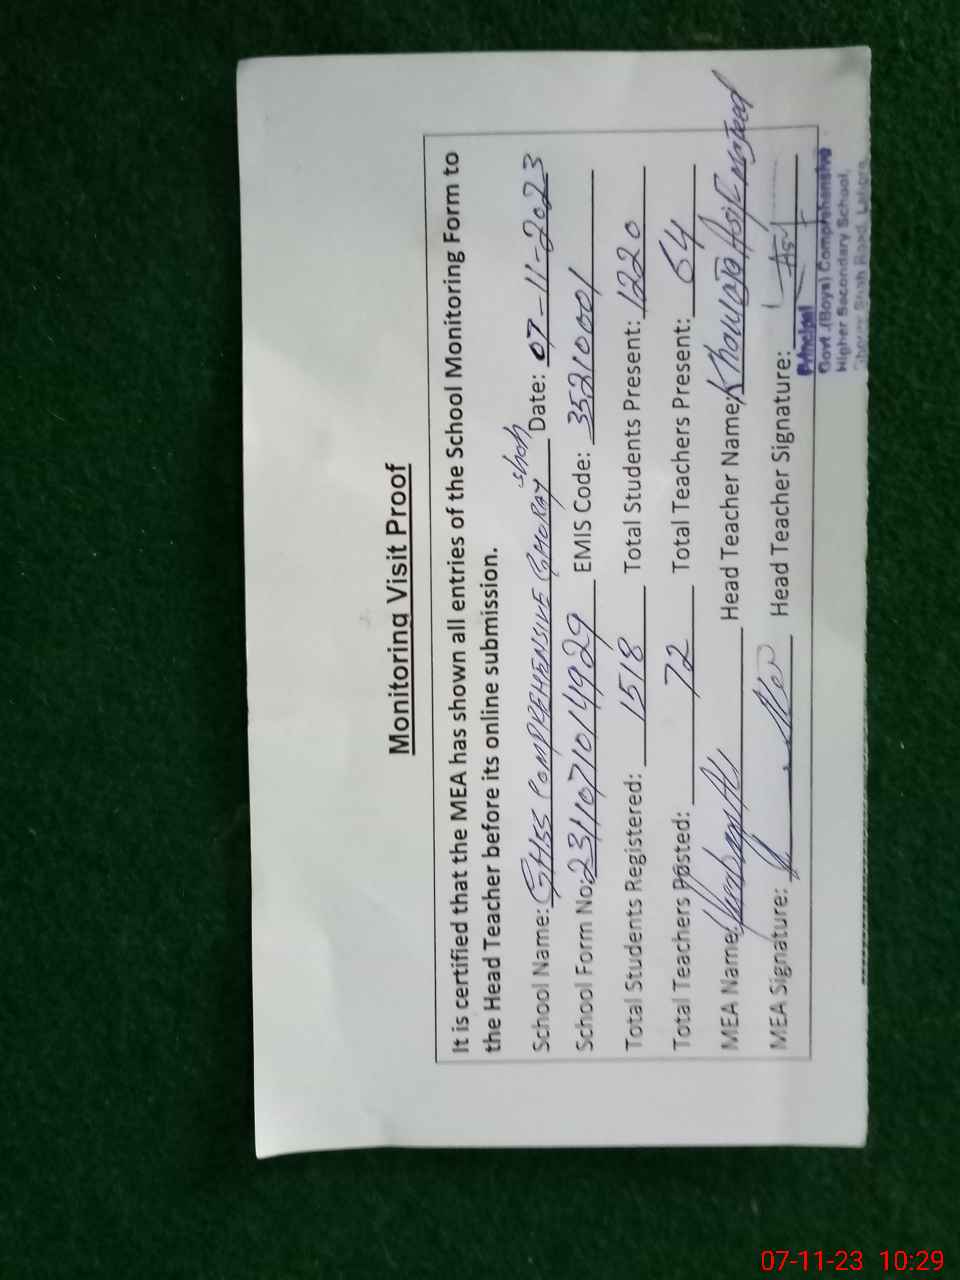 Monitoring Visit Proof
It is certified that the MEA has shown all entries of the School Monitoring Form to
the Head Teacher before its online submission.
School Name: GHSS COMPREHENSIVE GHORAY shah Date: 07-11-2023
School Form No: 2311071014929 EMIS Code: 35210001
Total Students Registered: 1518 Total Students Present: 1220
Total Teachers Posted: 72 Total Teachers Present: 64
MEA Name: Head Teacher Name: Khawaja Asif Majeed
MEA Signature: Head Teacher Signature:
Principal
Govt.(Boys) Comprehensive
Higher Secondary School,
Shah Road, Lahore
07-11-23 10:29